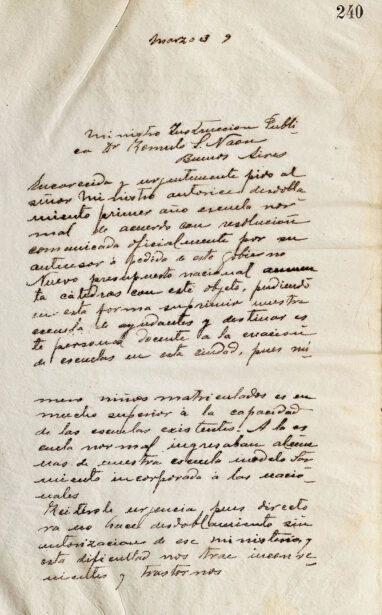 240
Marzo 3 9
Ministro Instruccion Publi
ca Dr Romulo S. Naon
Buenos Aires
Encarecida y urgentemente pido al
señor Ministro autorice desdobla
miento primer año escuela nor
mal de acuerdo con resolución
comunicada oficialmente por su
antecesor à pedido de este Gobierno
Nuevo presupuesto nacional aumen
ta cátedras con este objeto, pudiendo
en esta forma suprimir nuestra
escuela de ayudantes y destinar es
te personal docente a la creacion
de escuelas en esta ciudad, pues nú-
mero niños matriculados es en
mucho superior à la capacidad
de las escuelas existentes. A la es
cuela normal ingresaban alum
nas de nuestra escuela modelo Sar
miento incorporada à las nacio
nales
Reiterole urgencia pues directo
ra no hace desdoblamiento sin
autorizacion de ese ministerio, y
esta dificultad nos trae inconve
nientes y trastornos